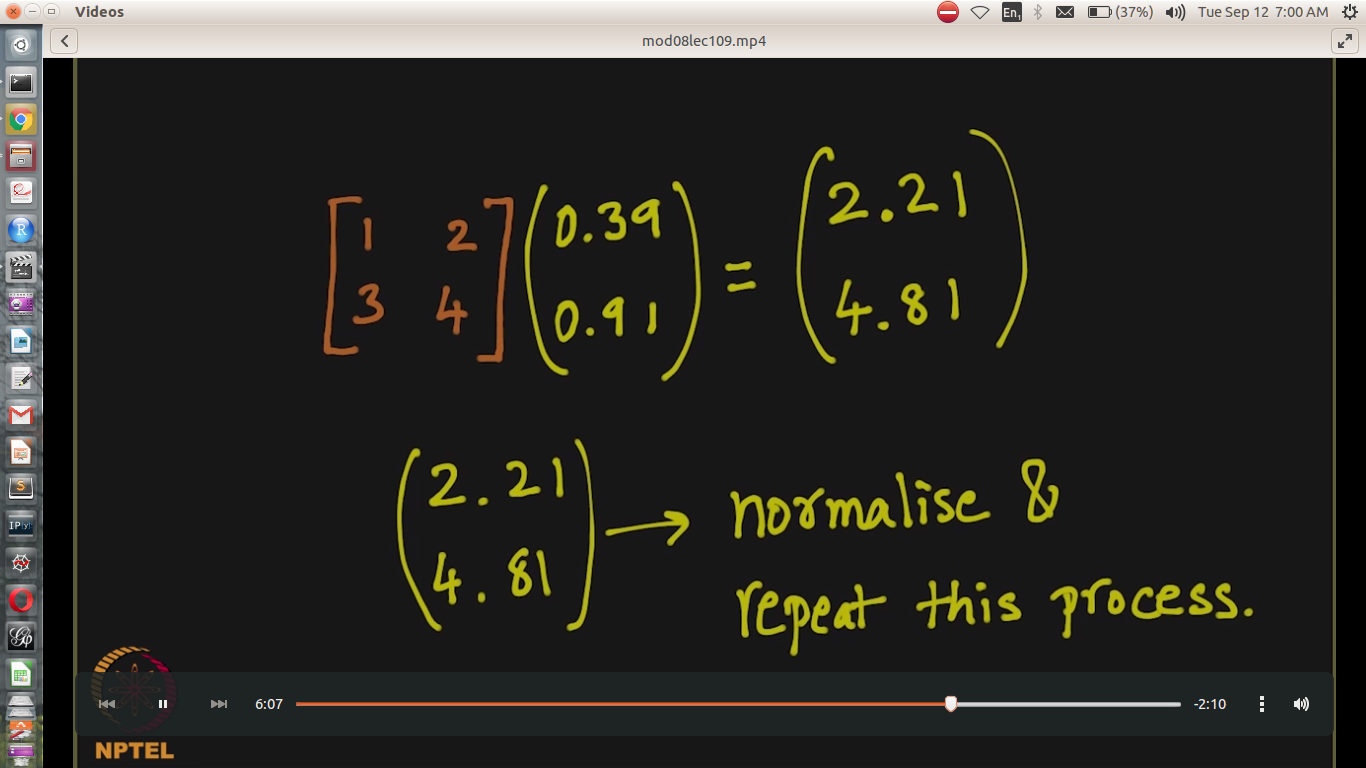 Videos
En1 (37%) Tue Sep 12 7:00 AM
mod08lec109.mp4
[1 2 3 4] (0.39 0.91) = (2.21 4.81)
(2.21 4.81) → normalise &
repeat this process.
6:07 -2:10
NPTEL